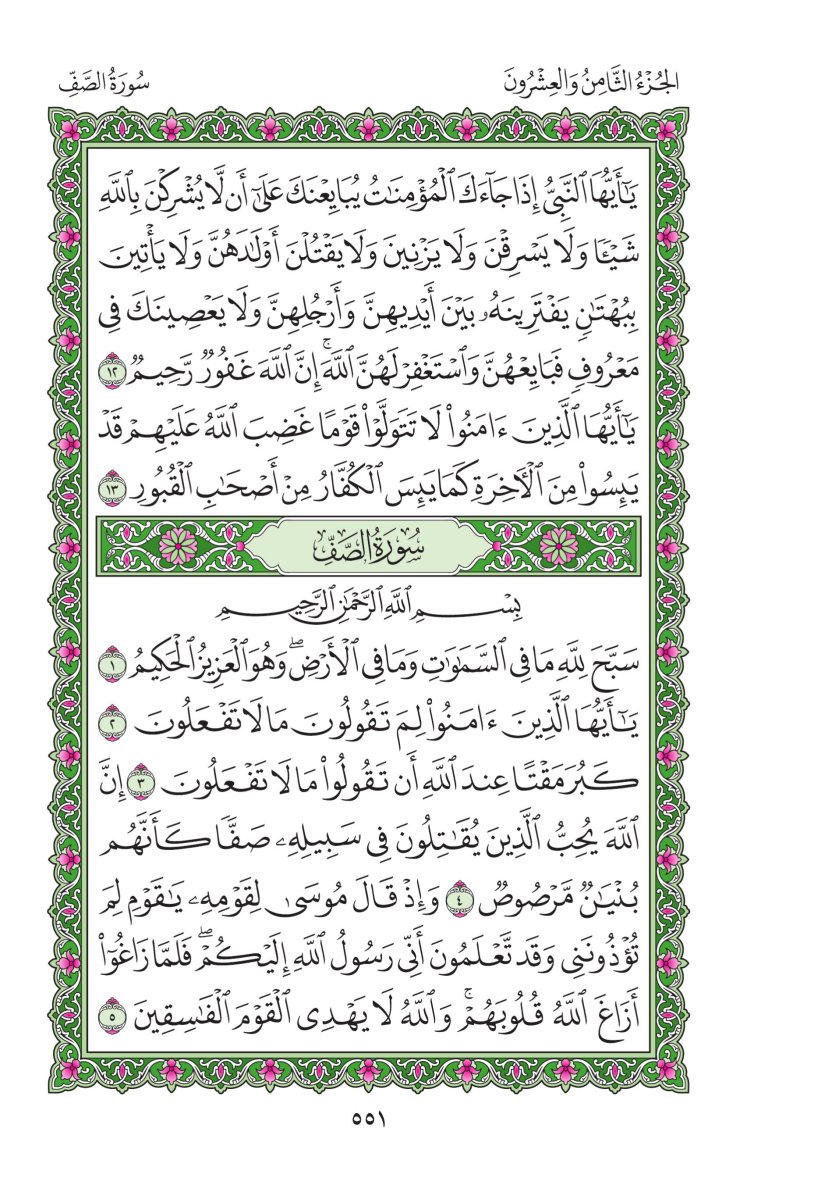 الجُزْءُ الثَّامِنُ وَالعِشْرُونَ
سُورَةُ الصَّفِّ
يَٰٓأَيُّهَا ٱلنَّبِيُّ إِذَا جَآءَكَ ٱلۡمُؤۡمِنَٰتُ يُبَايِعۡنَكَ عَلَىٰٓ أَن لَّا يُشۡرِكۡنَ بِٱللَّهِ
شَيۡـٔٗا وَلَا يَسۡرِقۡنَ وَلَا يَزۡنِينَ وَلَا يَقۡتُلۡنَ أَوۡلَٰدَهُنَّ وَلَا يَأۡتِينَ
بِبُهۡتَٰنٖ يَفۡتَرِينَهُۥ بَيۡنَ أَيۡدِيهِنَّ وَأَرۡجُلِهِنَّ وَلَا يَعۡصِينَكَ فِي
مَعۡرُوفٖ فَبَايِعۡهُنَّ وَٱسۡتَغۡفِرۡ لَهُنَّ ٱللَّهَۚ إِنَّ ٱللَّهَ غَفُورٞ رَّحِيمٞ ١٢
يَٰٓأَيُّهَا ٱلَّذِينَ ءَامَنُواْ لَا تَتَوَلَّوۡاْ قَوۡمًا غَضِبَ ٱللَّهُ عَلَيۡهِمۡ قَدۡ
يَئِسُواْ مِنَ ٱلۡأٓخِرَةِ كَمَا يَئِسَ ٱلۡكُفَّارُ مِنۡ أَصۡحَٰبِ ٱلۡقُبُورِ ١٣
سُورَةُ الصَّفِّ
بِسۡمِ ٱللَّهِ ٱلرَّحۡمَٰنِ ٱلرَّحِيمِ
سَبَّحَ لِلَّهِ مَا فِي ٱلسَّمَٰوَٰتِ وَمَا فِي ٱلۡأَرۡضِۖ وَهُوَ ٱلۡعَزِيزُ ٱلۡحَكِيمُ ١
يَٰٓأَيُّهَا ٱلَّذِينَ ءَامَنُواْ لِمَ تَقُولُونَ مَا لَا تَفۡعَلُونَ ٢
كَبُرَ مَقۡتًا عِندَ ٱللَّهِ أَن تَقُولُواْ مَا لَا تَفۡعَلُونَ ٣ إِنَّ
ٱللَّهَ يُحِبُّ ٱلَّذِينَ يُقَٰتِلُونَ فِي سَبِيلِهِۦ صَفّٗا كَأَنَّهُم
بُنۡيَٰنٞ مَّرۡصُوصٞ ٤ وَإِذۡ قَالَ مُوسَىٰ لِقَوۡمِهِۦ يَٰقَوۡمِ لِمَ
تُؤۡذُونَنِي وَقَد تَّعۡلَمُونَ أَنِّي رَسُولُ ٱللَّهِ إِلَيۡكُمۡۖ فَلَمَّا زَاغُوٓاْ
أَزَاغَ ٱللَّهُ قُلُوبَهُمۡۚ وَٱللَّهُ لَا يَهۡدِي ٱلۡقَوۡمَ ٱلۡفَٰسِقِينَ ٥
٥٥١